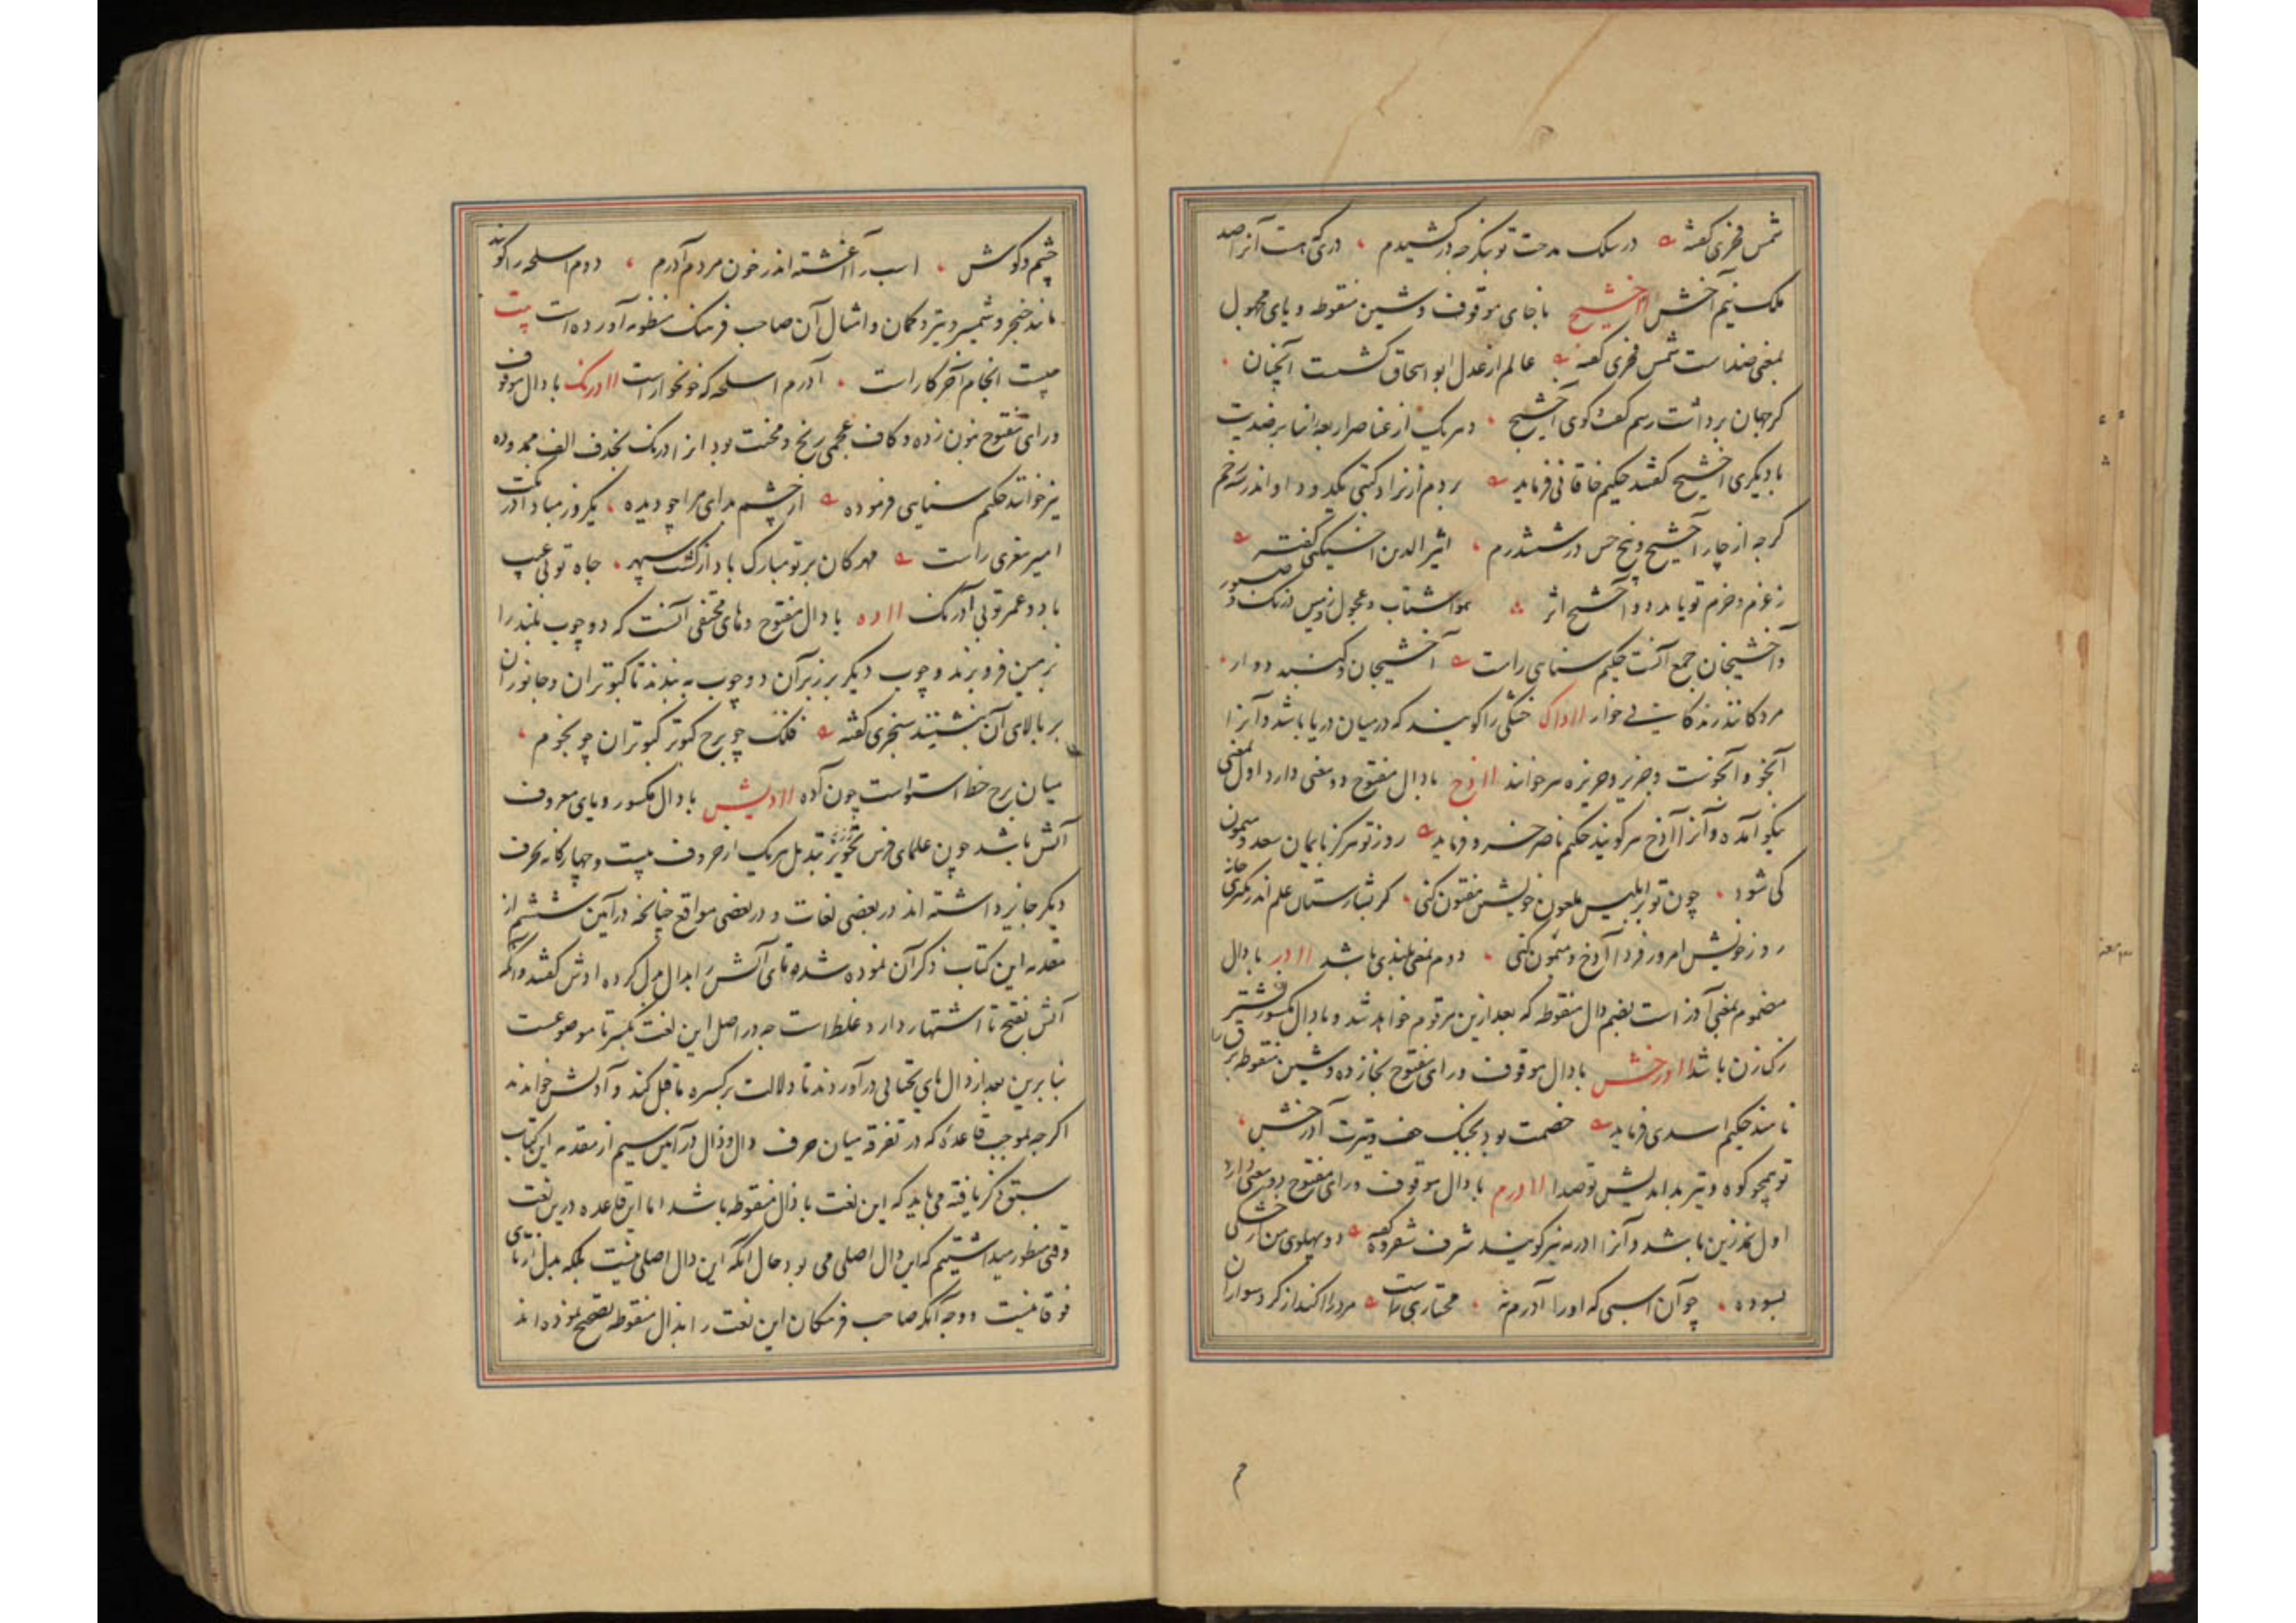 شمس فخری گفته در سلک مدحت تو بنگر چه در کشیدم درکی هست آنرا صد
ملک نیم آخش اآخشیج با خای موقوف و شین منقوطه و یای مجهول
بمعنی ضد است شمس فخری گفته عالم از عدل ابو اسحاق گشت آنچنان
کز جهان برداشت رسم گفت و گوی آخشیج و هریک از عناصر اربعه را بنابر ضدیت
با دیگری آخشیج گفتند حکیم خاقانی فرماید بردم از نراد گیتی یکدو داو اندر سه زخم
گرچه از چار آخشیج و پنج حس در ششدرم اثیر الدین اخسیکتی گفته
ز عزم و حزم تو یابد دو آخشیج اثر هوا شتاب و عجول زمین درنک و صبور
و آخشیجان جمع آنست حکیم سنایی راست آخشیجان و گنبد دوار
مردگانند زندگانی خوار ااداک خشکی را گویند که در میان دریا باشد و آنرا
آبخو و آبخوست و جزیر و جزیره هم خوانند اادخ با دال مفتوح دو معنی دارد اول بمعنی
نیکو آمده و آنرا آذخ هم گویند حکیم ناصر خسرو فرماید روز تو هرگز بایمان سعد و میمون
کی شود چون تو بر ابلیس ملعون خویش مفتون کنی گر بشارستان علم اندر بگیری خانه
روز خویش امروز فردا آدخ و میمون کنی دوم بمعنی بلندی باشد اادر با دال
مضموم بمعنی آذر است بضم دال منقوطه که بعد ازین مرقوم خواهد شد و با دال مکسور نشتر
رک زن باشد اادرخش با دال موقوف و رای مفتوح بخا زده و شین منقوطه برق را
نامند حکیم اسدی فرماید خصمت بود بجنگ خف و تیرت آدرخش
تو همچو کوه و تیر بداندیش تو صدا اادرم با دال موقوف و رای مفتوح دو معنی دارد
اول نمد زین باشد و آنرا ادرمه نیز گویند شرف شفروه گفته دو پهلوی من از خشکی
بسوده چو آن اسبی که او را آدرم نه مختاری راست مرد را کند از گرد سواران
چشم و گوش اسب را آغشته اندر خون مردم آدرم دوم اسلحه را گویند
مانند خنجر و شمشیر و تیر و کمان و امثال آن صاحب فرهنک منظومه آورده است بیت
چیست انجام آخر کار است آدرم اسلحه که خونخوار است اادرنک با دال موقوف
و رای مفتوح بنون زده و کاف عجمی رنج و محنت بود و انرا ادرنک بحذف الف ممدوده
نیز خوانند حکیم سنایی فرموده از چشم بدای مرا چو دیده یکروز مباد آدرنکت
امیر معزی راست مهرکان بر تو مبارک باد از گشت سپهر جاه تو بی عیب
باد و عمر تو بی آدرنک ااده با دال مفتوح و های مختفی آنست که دو چوب بلند را
بزمین فرو برند و چوب دیگر بر زبر آن دو چوب به بندند تا کبوتران و جانوران
بر بالای آن بنشینند سنجری گفته فلک چو برج کبوتر کبوتران چو نجوم
میان برج خط استواست چون آده اادیش با دال مکسور و یای معروف
آتش باشد چون علمای فرس تجویز تبدیل هریک از حروف بیست و چهارگانه بحرف
دیگر جایز داشته اند در بعضی لغات و در بعضی مواقع چنانچه در آیین ششم از
مقدمه این کتاب ذکر آن نموده شد و تای آتش را بدال بدل کرده ادش گفتند و آنکه
آتش بفتح تا اشتهار دارد غلط است چه در اصل این لغت بکسر تا موضوعست
بنابرین بعد از دال یای تحتانی در آوردند تا دلالت بر کسره ماقبل کند و آدیش خواندند
اگرچه بموجب قاعده که در تفرقه میان حرف دال و ذال در آیین سیم از مقدمه این کتاب
سبق ذکر یافته می باید که این لغت با ذال منقوطه باشد اما این قاعده درین لغت
وقتی منظور میداشتیم که این دال اصلی می بود و حال آنکه این دال اصلی نیست بلکه بدل از تای
فوقانیست و وجه آنکه صاحب فرهنگان این لغت را بذال منقوطه تصحیح نموده اند